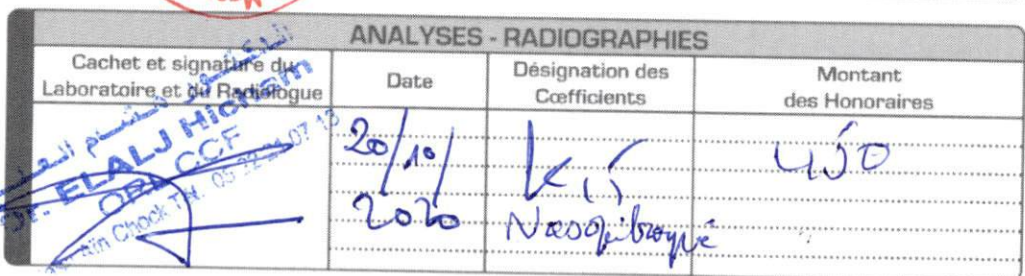 ANALYSES - RADIOGRAPHIES
Cachet et signature du
Laboratoire et du Radiologue
Date
Désignation des
Cœfficients
Montant
des Honoraires
الدكتور هشام
Dr. ELALJ Hicham
ORL CCF
Aïn Chock Tél. 05 22 21 07 13
20/10/
2020
K15
450